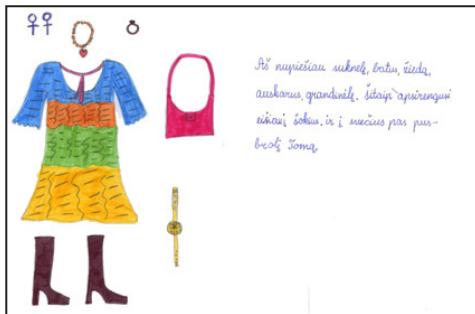 Aš nupiešiau suknelę, batus, žiedą,
auskarus, grandinėlę. Šitaip apsirengusi
eičiau į šokius, ir į svečius pas pus-
brolį Tomą.